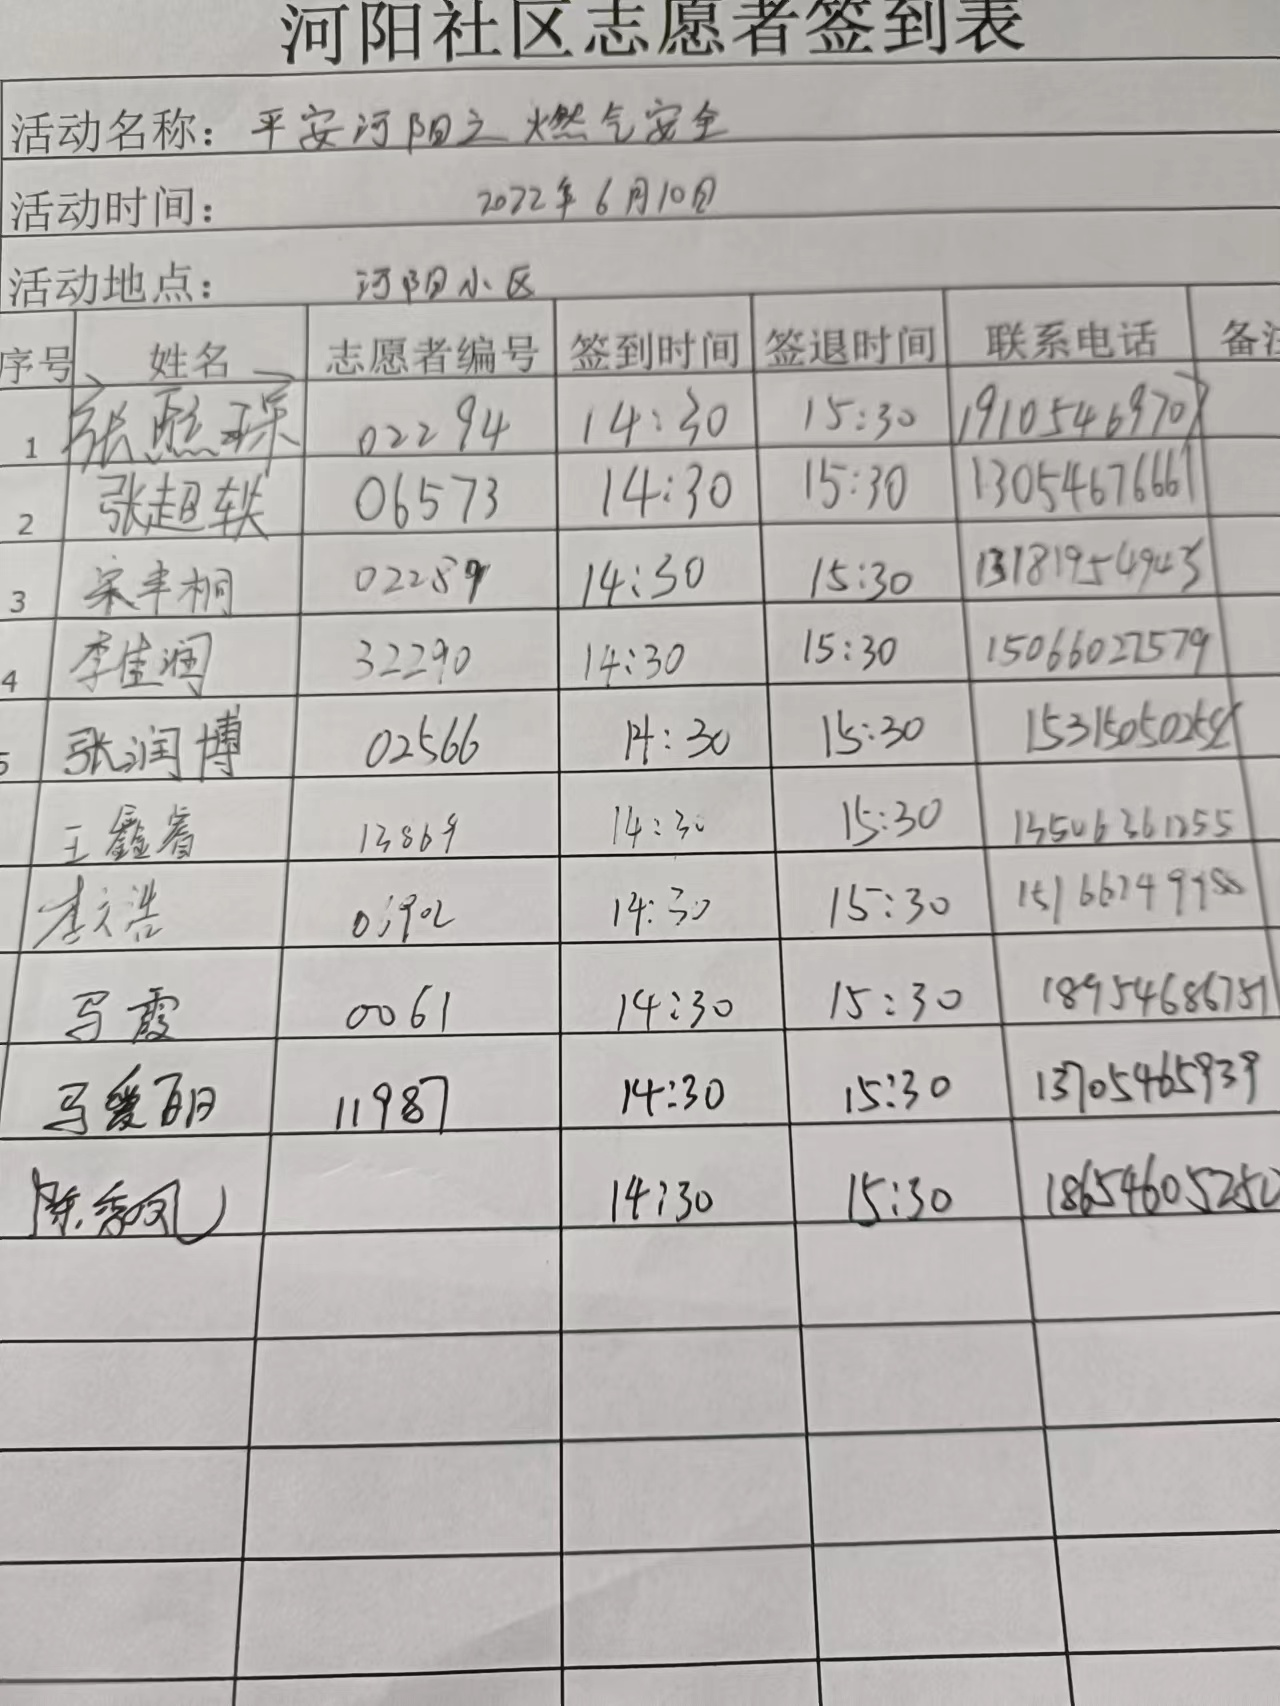 河阳社区志愿者签到表
活动名称：平安河阳之燃气安全
活动时间：2022年6月10日
活动地点：河阳小区
序号 姓名 志愿者编号 签到时间 签退时间 联系电话 备注
1 张熙琛 02294 14:30 15:30 19105469707
2 张超轶 06573 14:30 15:30 13054676661
3 宋丰桐 02289 14:30 15:30 13181954943
4 李佳润 32290 14:30 15:30 15066027579
5 张润博 02566 14:30 15:30
王鑫睿 13869 14:30 15:30 13506361255
李文浩 14:30 15:30
马霞 0061 14:30 15:30 18954686751
马爱丽 11987 14:30 15:30 13705465939
陈秀凤 14:30 15:30 18654605250